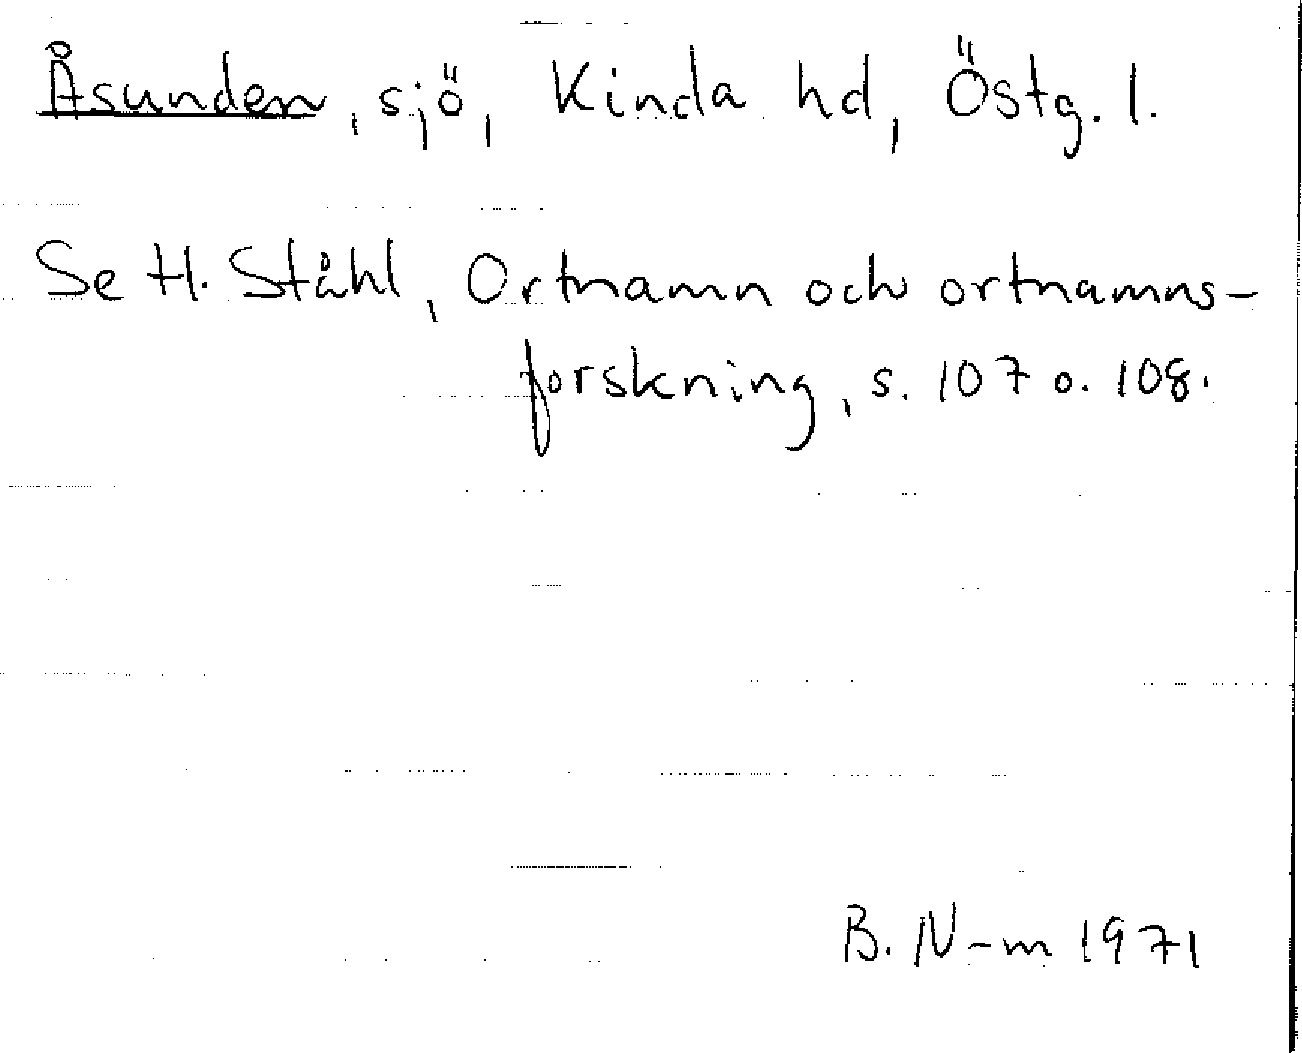 Åsunden, sjö, Kinda hd, Östg. l.
Se H. Ståhl, Ortnamn och ortnamns-
forskning, s. 107 o. 108.
B. N-m 1971